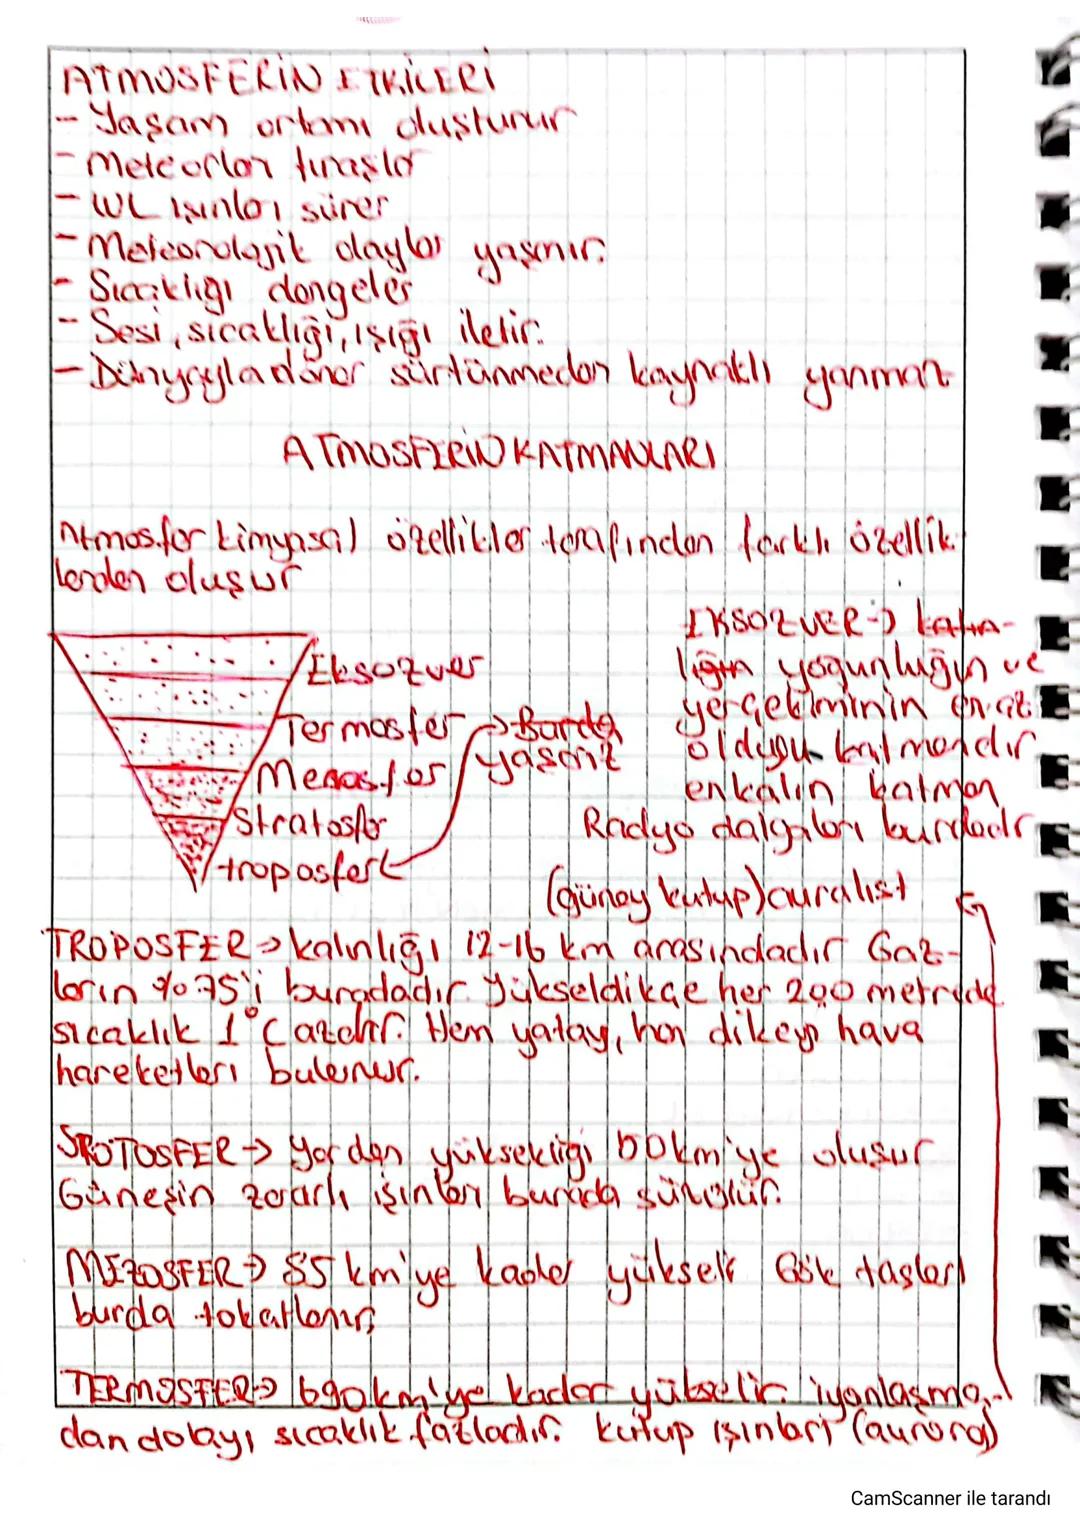 ATMOSFERİN ETKİLERİ
- Yaşam ortamı oluşturur
- Meteorları tıraşlar
- UV ışınları sürer
- Meteorolojik olaylar yaşanır.
- Sıcaklığı dengeler
- Sesi, sıcaklığı, ışığı iletir.
- Dünyayla döner sürtünmeden kaynaklı yanmaz
ATMOSFERİN KATMANLARI
Atmosfer kimyasal özellikler tarafından farklı özellik
lerden oluşur
EKSOZVER → kalıa-
Eksozver
lığın yoğunluğun ve
yerçekiminin en az
Termosfer → Burda
yaşarız
olduğu katmandır
Mezosfer
en kalın katman
Stratosfer
Radyo dalgaları burdadır
troposfer
(güney kutup) auralist
TROPOSFER → kalınlığı 12-16 km arasındadır Gaz-
ların %75'i buradadır. Yükseldikçe her 200 metrede
sıcaklık 1°C azalır. Hem yatay, hem dikey hava
hareketleri bulunur.
STOTOSFER → Yerden yüksekliği 50km'ye oluşur
Güneşin zararlı ışınları burada süzülür.
MEZOSFER → 85 km'ye kadar yükselir Gök taşları
burda tokatlanır
TERMOSFER → 690km'ye kadar yükselir. iyonlaşma-
dan dolayı sıcaklık fazladır. kutup ışınları (aurora)
CamScanner ile tarandı